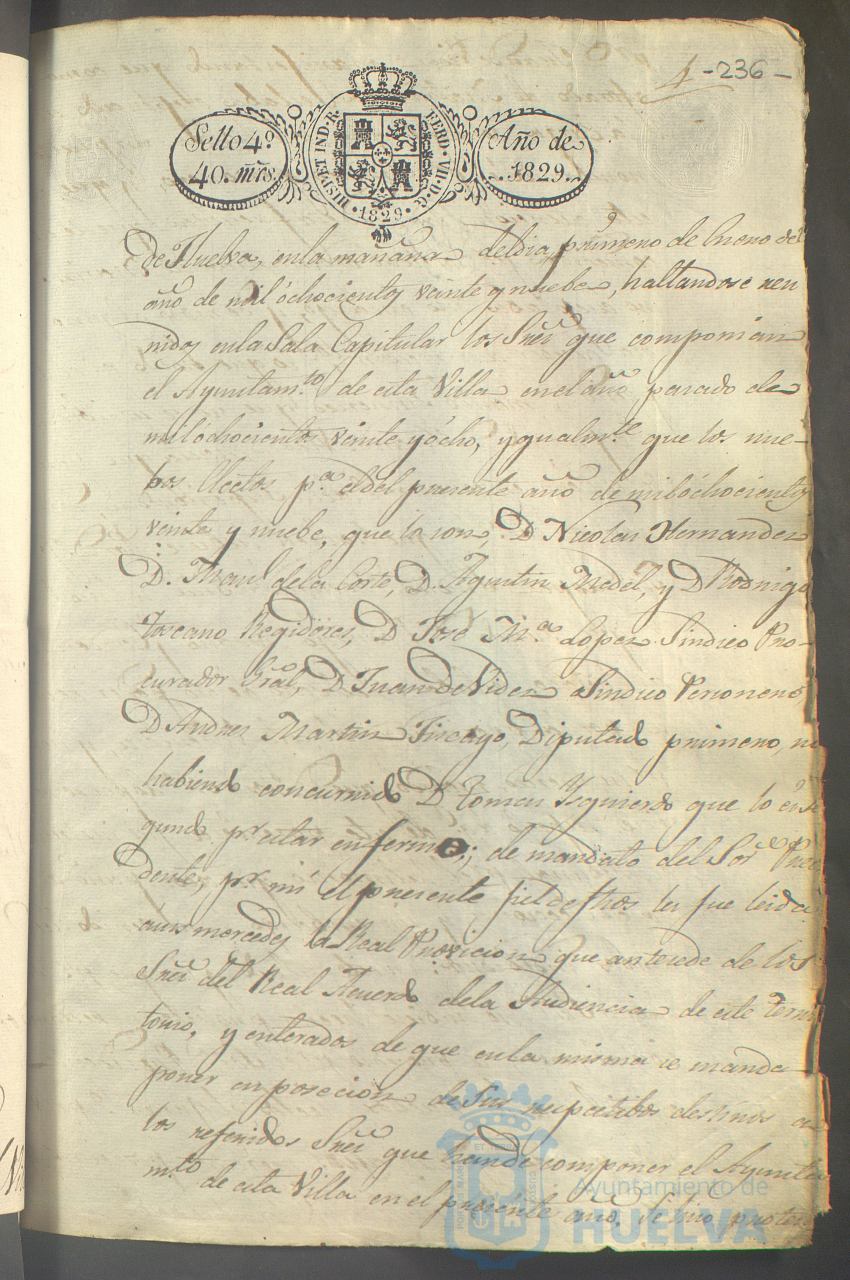 4 -236-
Sello 4º
40. mrs.
HISP. ET IND. R. FERD. VII. D. G. 1829.
Año de
1829.
de Huelva, en la mañana del dia primero de Enero del
año de mil ochocientos veinte y nuebe, hallandose reu
nidos en la Sala Capitular los Sres que componian
el Ayuntamto de esta Villa en el año pasado de
mil ochocientos veinte y ocho, y gualmte que los nue-
bos Electos pa el del presente año de mil ochocientos
veinte y nuebe, que lo son, D Nicolas Hernandez
D. Manl de la Corte, D. Agustin Medel, y D Rodrigo
Toscano Regidores, D José Ma Lopez Sindico Pro-
curador Gral, D Juan de Vides Sindico Personero,
D Andres Martin Tiscayo, Diputado primero, no
habiendo concurrido D Tomas Ysquierdo que lo es Se
gundo pr estar enfermo; de mandato del Sor Presi
dente, pr mi el presente fiel de fhos les fue leida
á sus mercedes la Real Provicion que antecede de los
Sres del Real Acuerdo de la Audiencia de este terri
torio, y enterados de que en la misma se manda
poner en posecion de sus respectibos destinos a
los referidos Sres que han de componer el Ayunta
mto de esta Villa en el presente año,
Ayuntamiento de
HUELVA